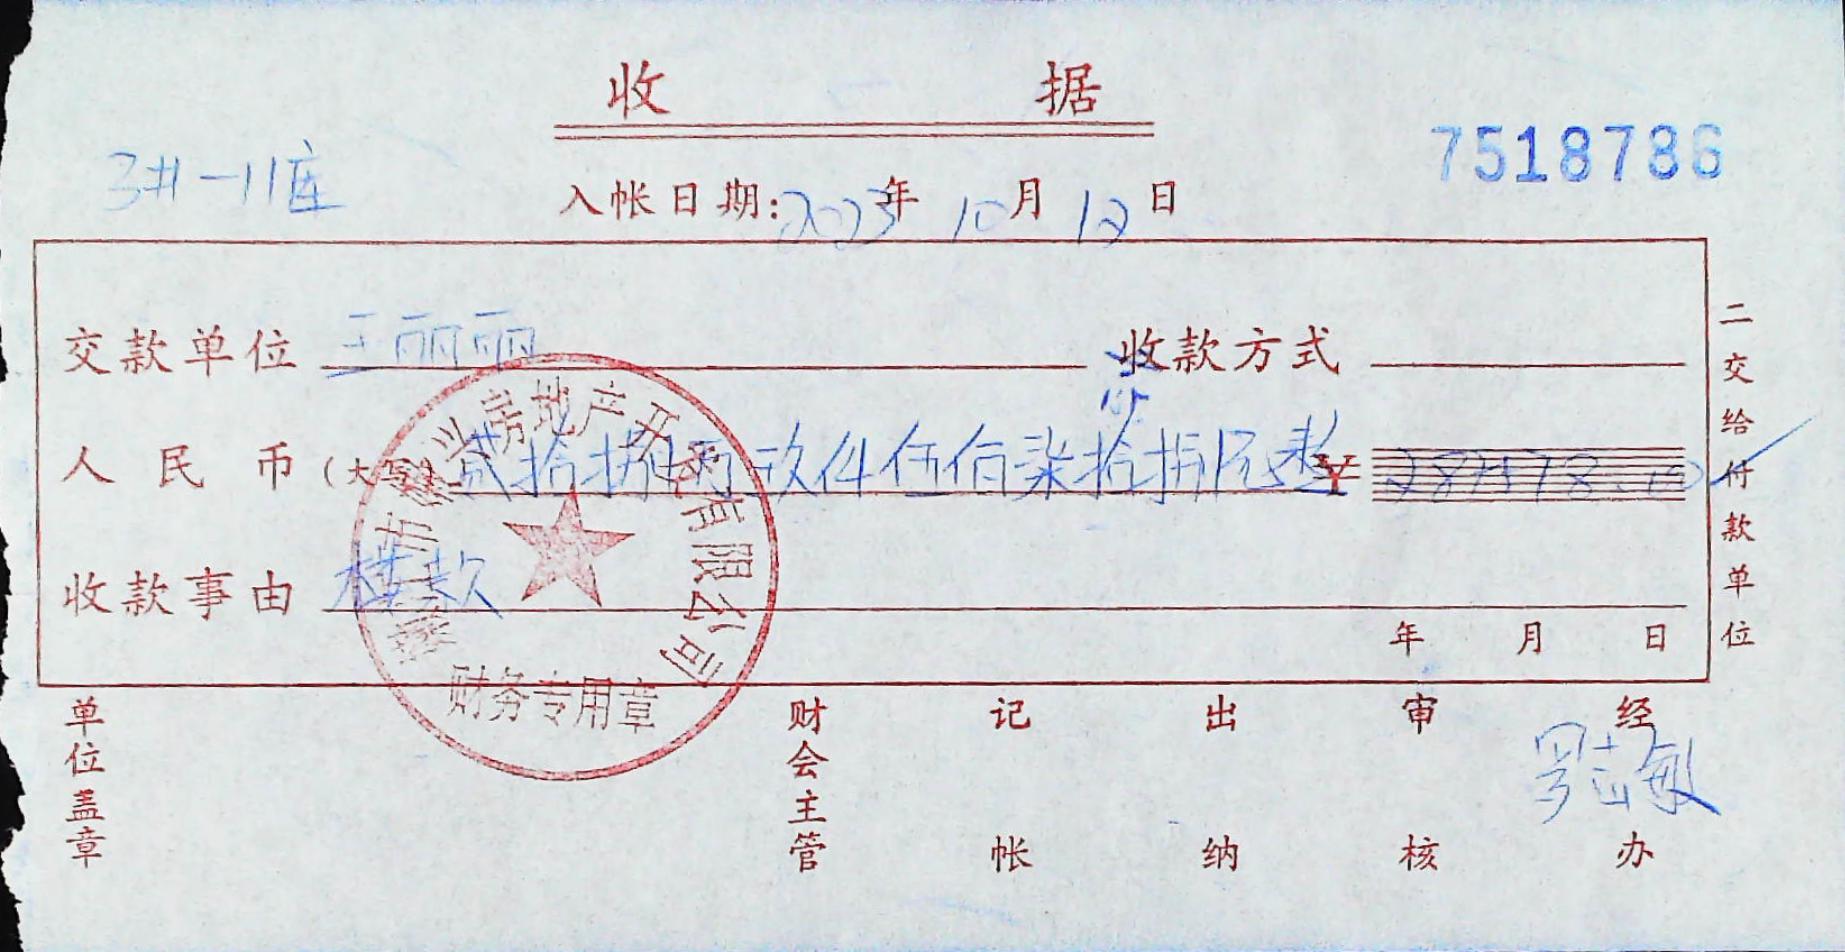 收 据
7518786
3#-11库
入帐日期:2023年 10月 12日
交款单位 王丽丽 收款方式
人民币(大写) 贰拾捌万玖仟伍佰柒拾捌元整 ¥
收款事由 楼款
年 月 日
二交给付款单位
房地产开发有限公司
财务专用章
单位盖章
财会主管
记帐
出纳
审核
经办 罗志敏